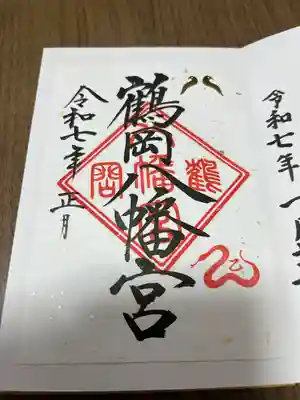 令和七年
一月
鶴岡八幡宮
鶴
岡
幡
令和七年 正月